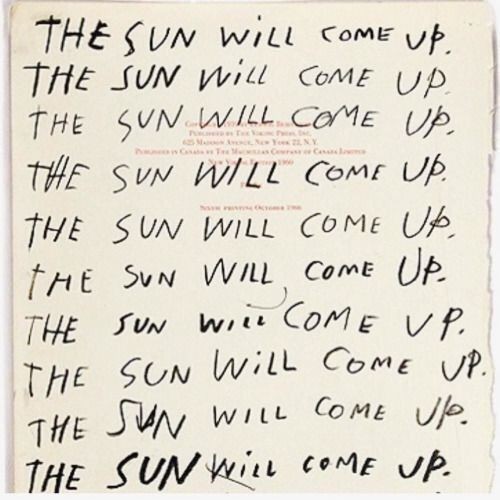 THE SUN WiLL COME UP.
THE SUN Will COME UP.
THE SUN WILL COME UP.
PUBLISHED BY THE VIKING PRESS, INC.
625 MADISON AVENUE, NEW YORK 22, N.Y.
PUBLISHED IN CANADA BY THE MACMILLAN COMPANY OF CANADA LIMITED
THE SUN WILL COME UP.
SIXTH PRINTING OCTOBER 1966
THE SUN WILL COME UP.
THE SUN WILL COME UP.
THE SUN WiLL COME UP.
THE SUN WiLL COME UP.
THE SUN WILL COME UP.
THE SUN Will COME UP.